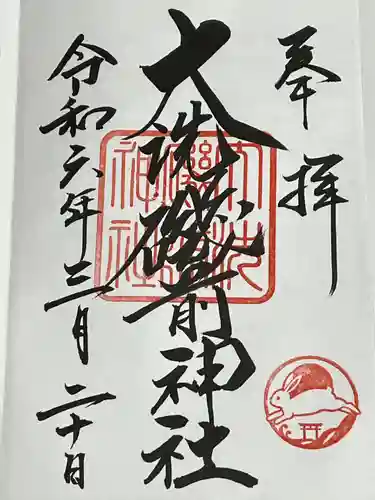 奉拝
大洗磯前神社
令和六年三月二十日
大洗
磯前
神社